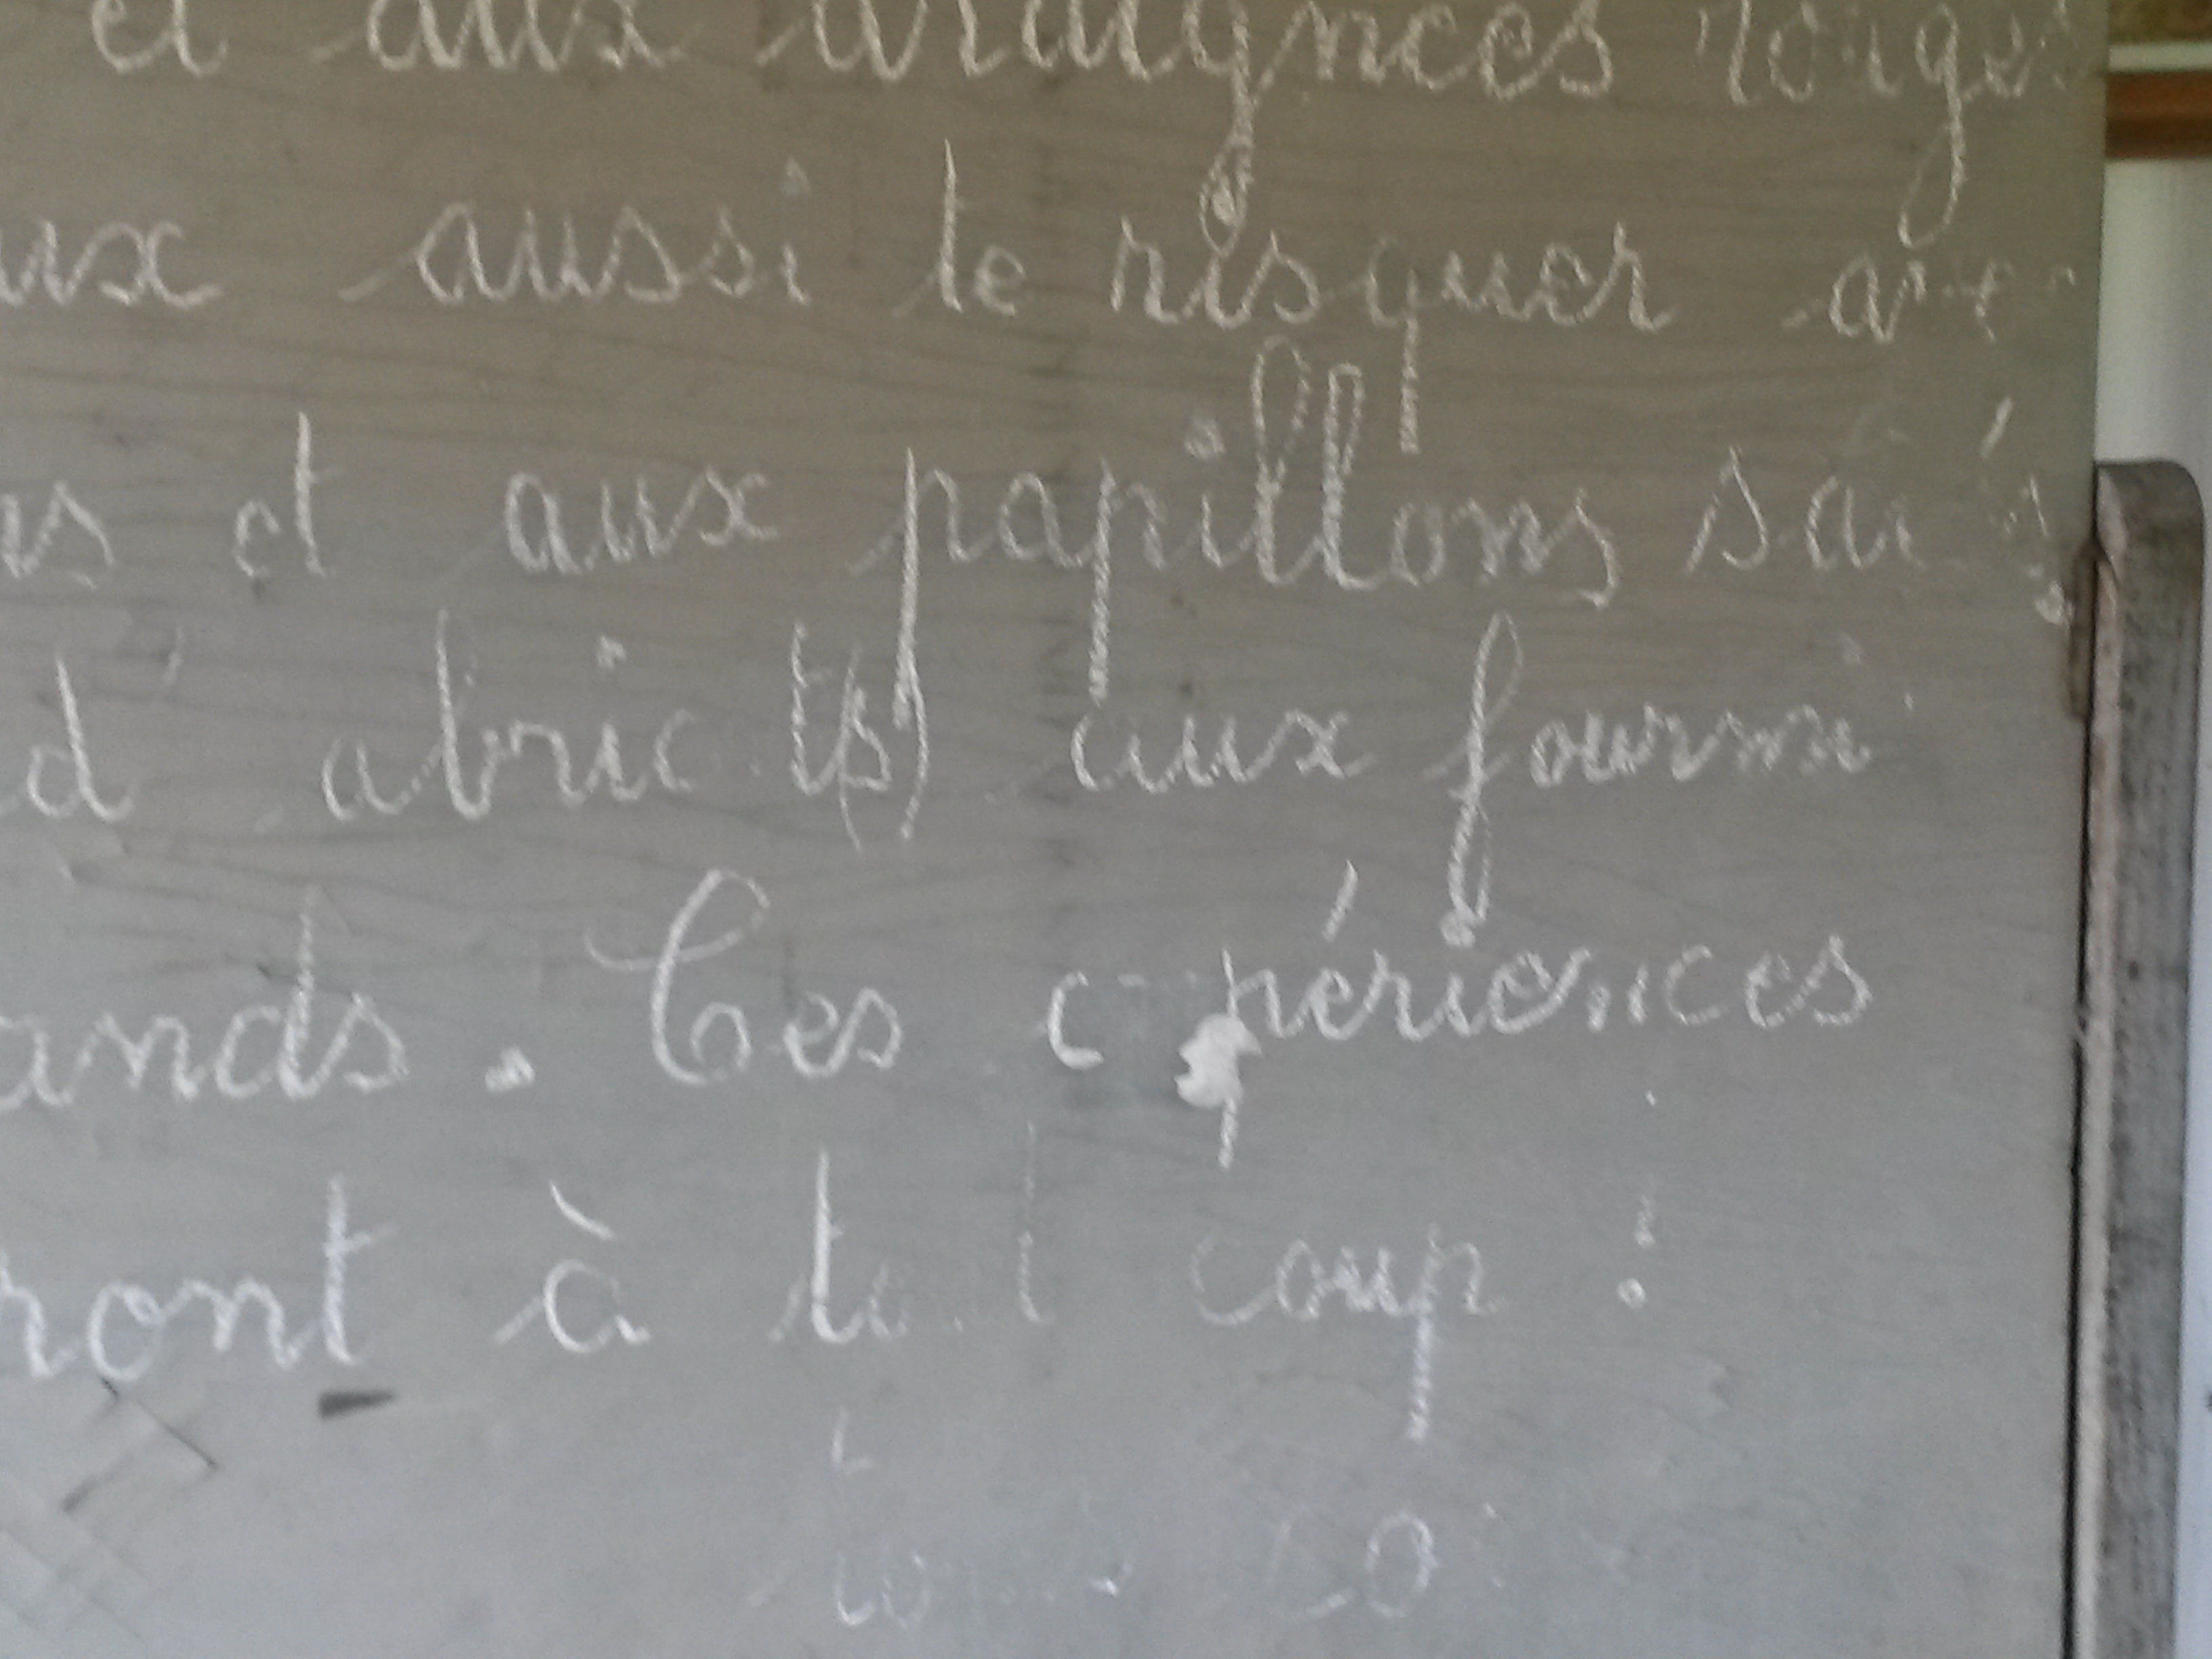 et aux araignées rouges
ux aussi te risquer avec
ns et aux papillons sai
d'abricot(s) aux fourmi
ands. Ces expériences
ront à tout coup !